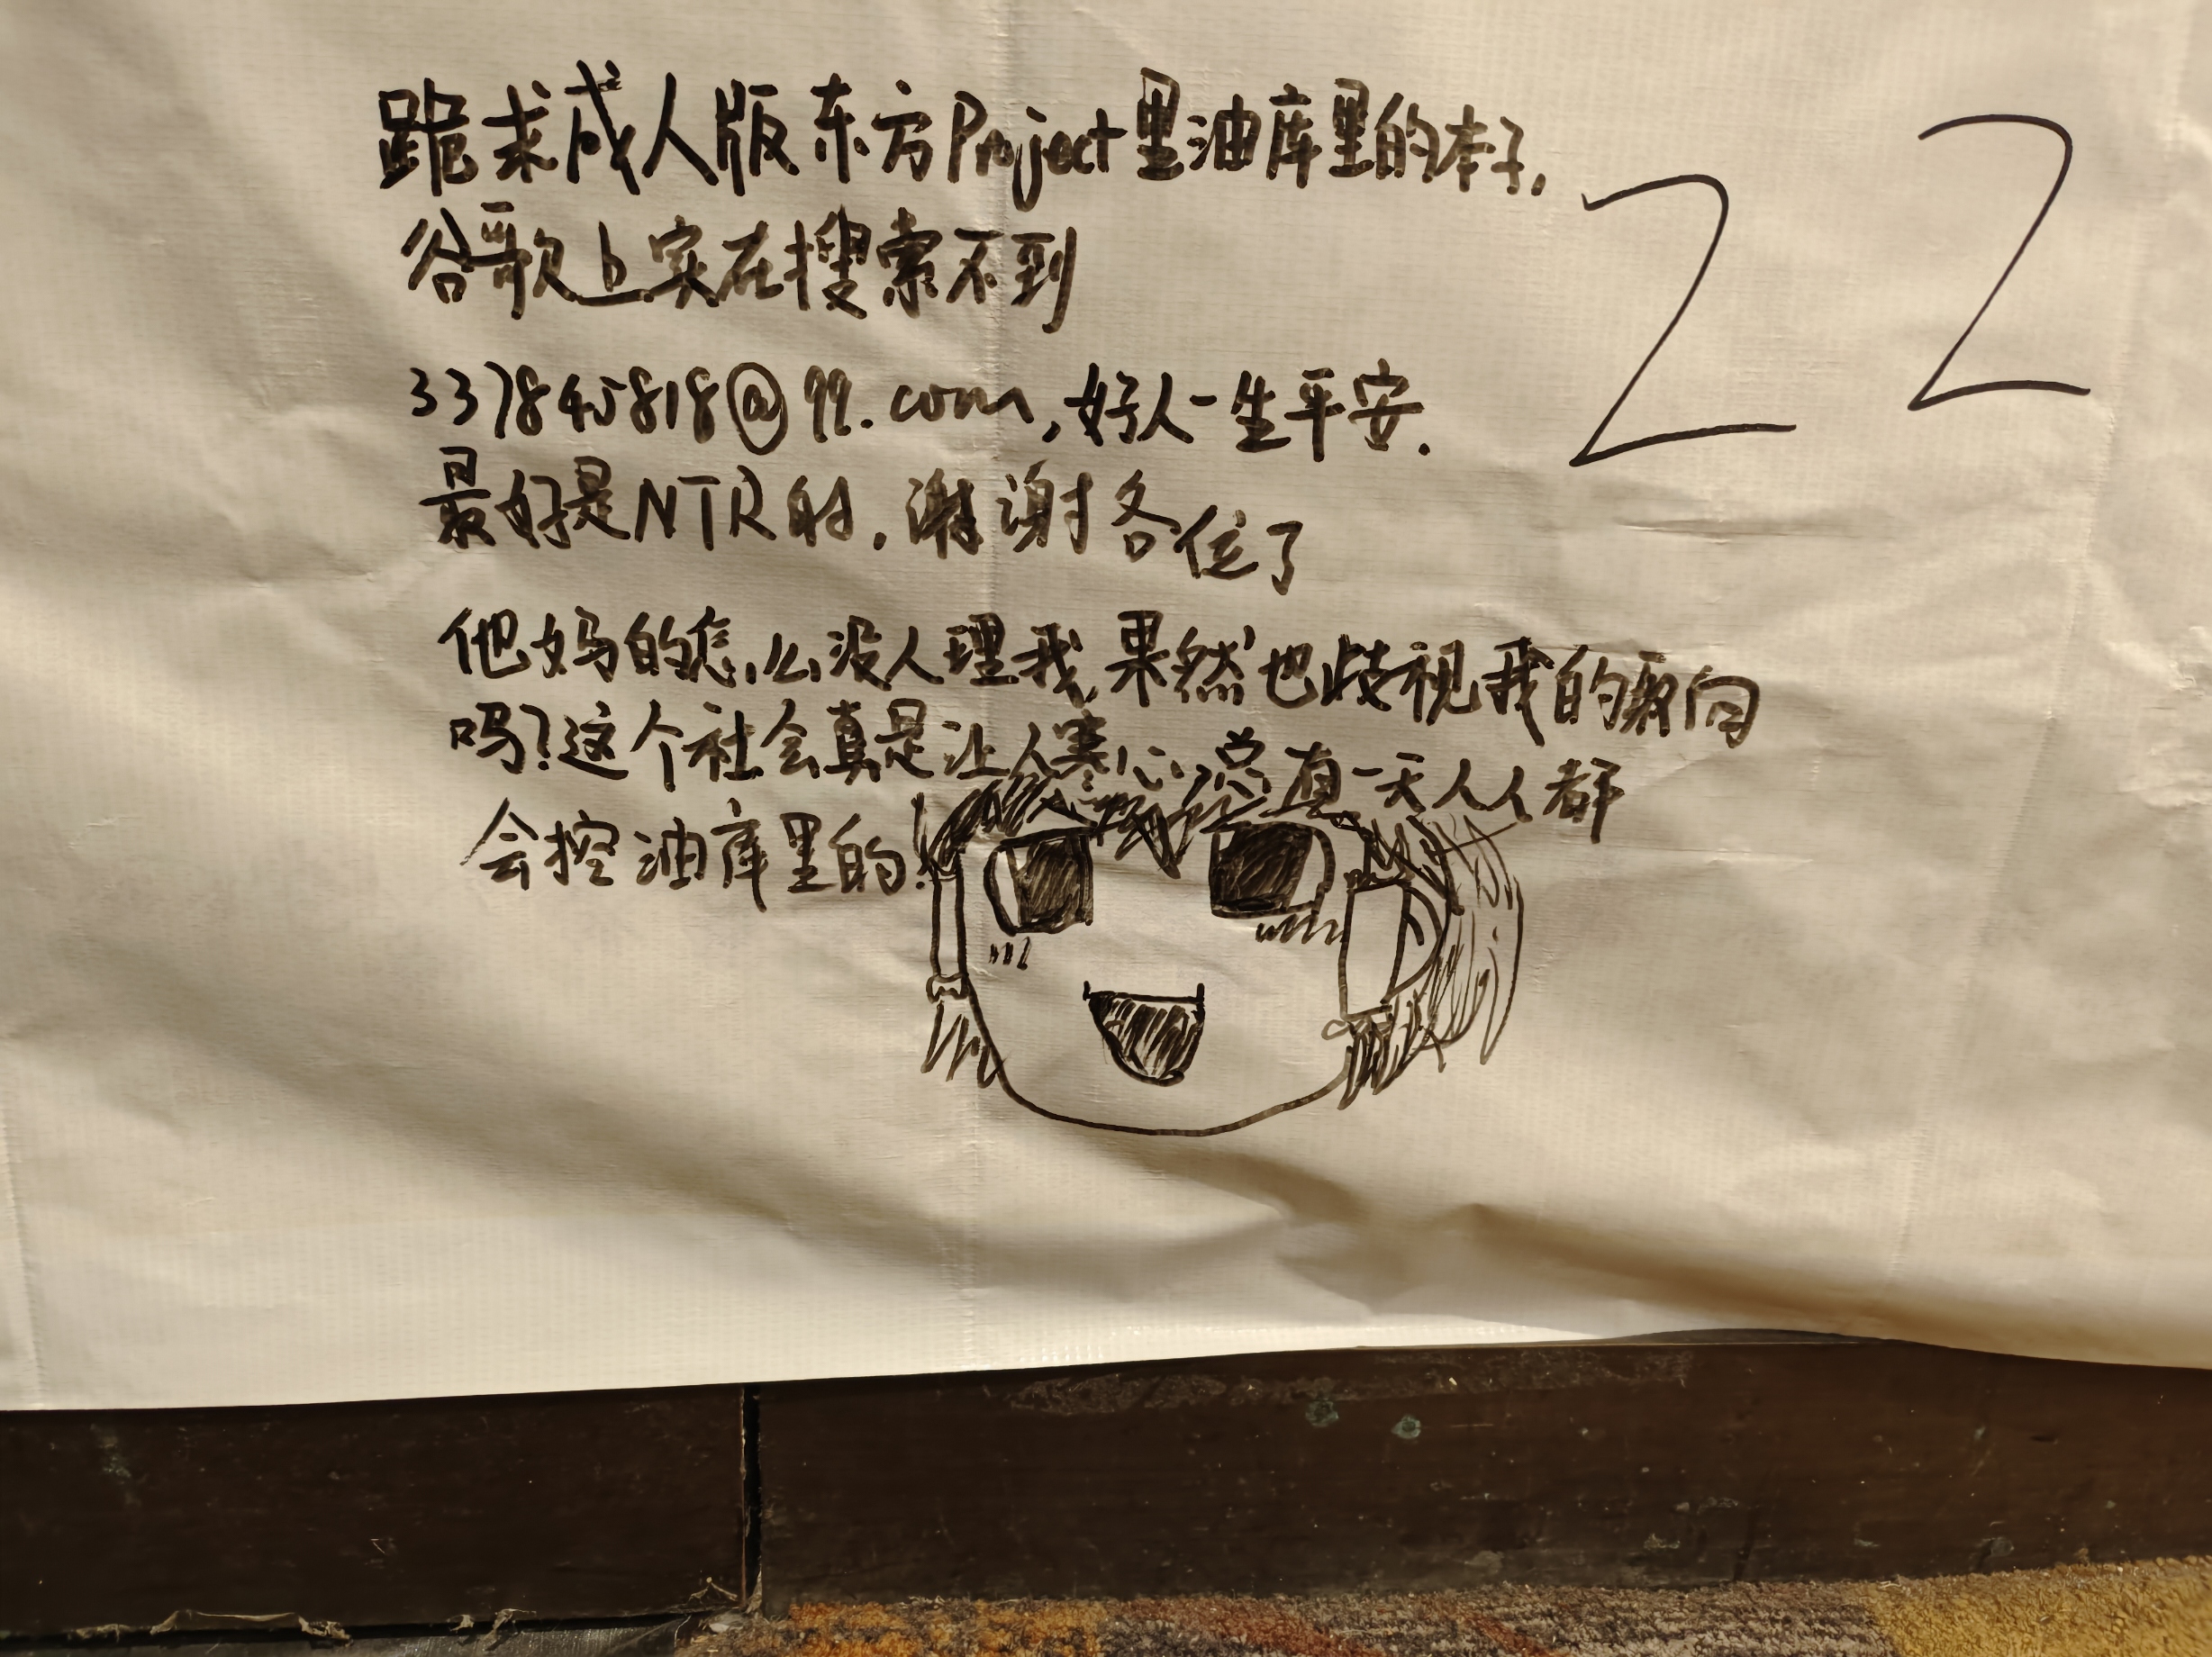 跪求成人版东方Project里油库里的本子,
谷歌上实在搜索不到
337845818@qq.com,好人一生平安.
最好是NTR的,谢谢各位了
他妈的怎么没人理我,果然也歧视我的取向
吗?这个社会真是让人寒心,总有一天人人都
会控油库里的!
22